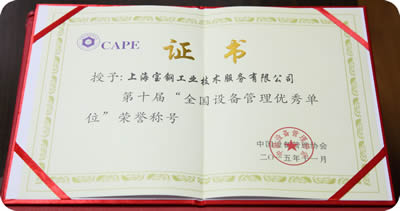 CAPE
证书
授予：上海宝钢工业技术服务有限公司
第十届“全国设备管理优秀单
位”荣誉称号
中国设备管理协会
二〇一五年十一月